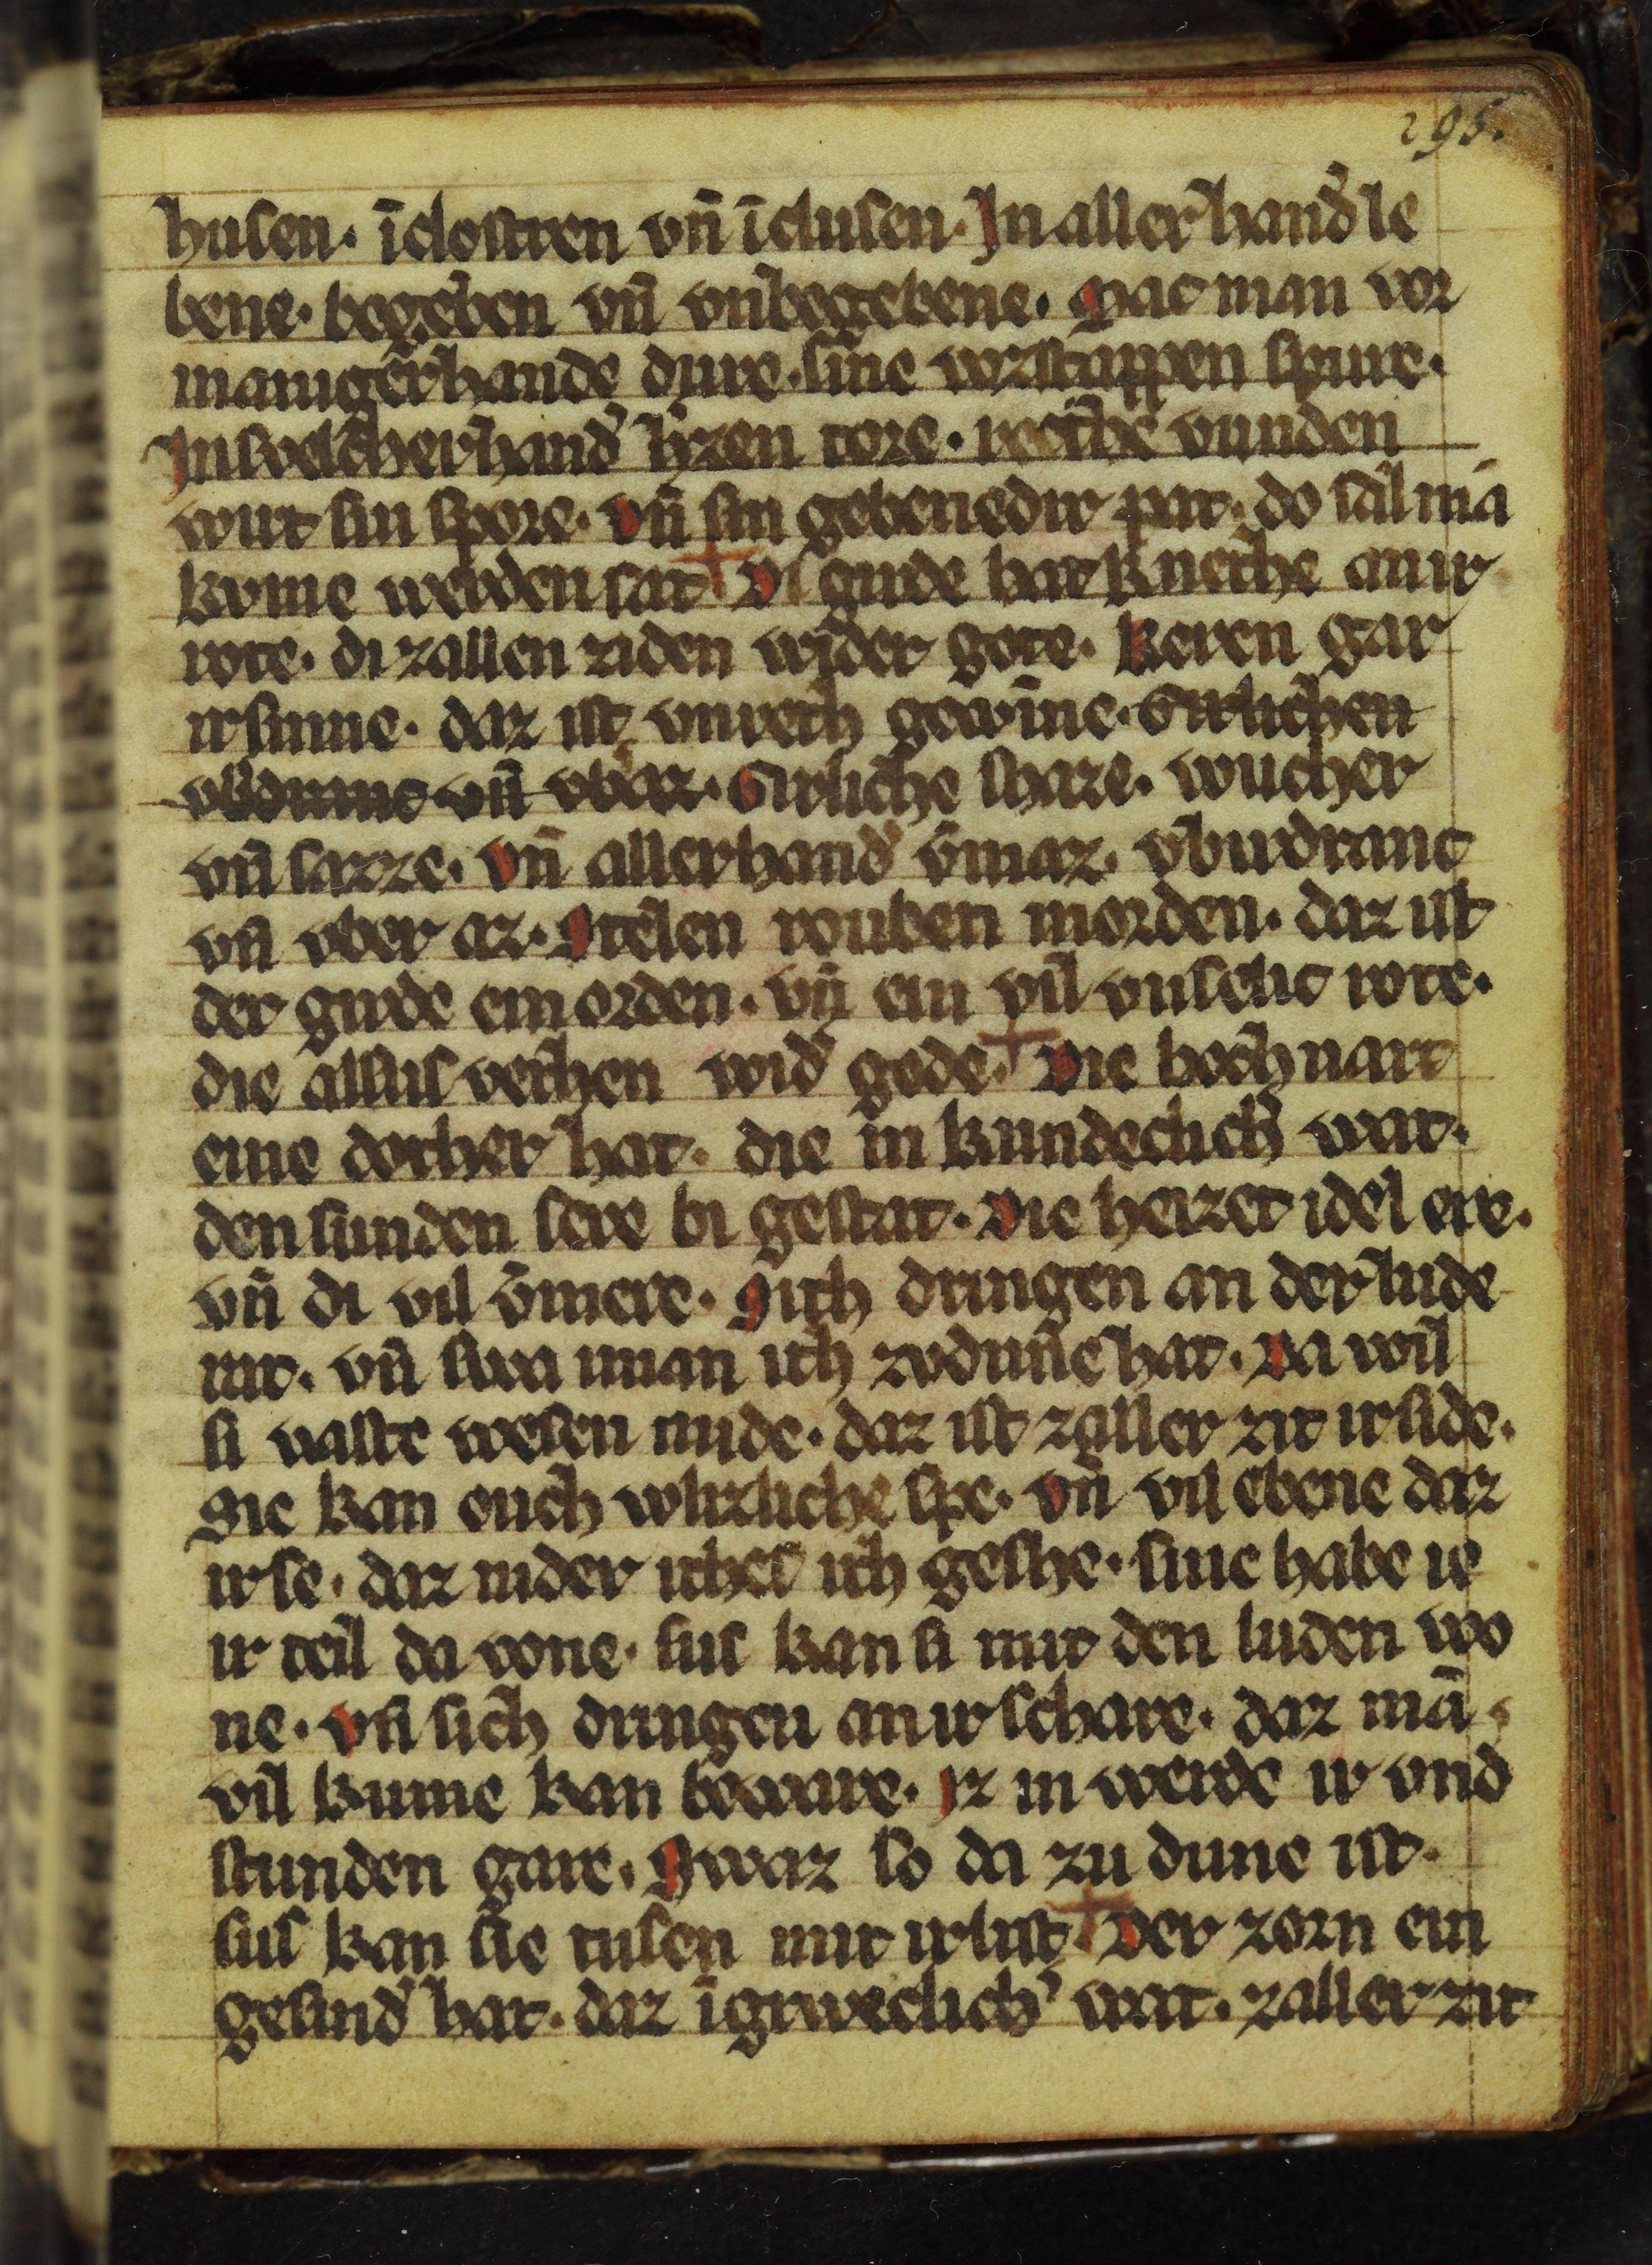 295.
husen. īclostren vn̄ īclusen. In aller hand' le
bene. begeben vn̄ vnbegebene. Mac man vor
maniger hande dure. sine vzstappen spure.
In swelcher hand' hzen tore. rechte wnden
wirt sin spore. Vn̄ sin gebenedit pat. do sal mā
kvme werden sat Di girde hat knethe an ir
rote. di zallen ziden wider gote. keren gar
ir sinne. daz ist vnrech gewīne. Girlichen
vbdranc vn̄ vbaz. Girliche shaze. wucher
vn̄ sazze. Vn̄ allerhand' v̄maz. vbirdranc
vn̄ vber az. Stelen rouben morden. daz ist
der girde ein orden. vn̄ ein vil vnselic rote.
die alsus vethen wid' gode. Die hochuart
eine docther hat. die in kundeclich' wat.
den sunden sere bi gestat. Die heizet idel ere.
vn̄ di vil v̄mere. Sich dringen an der lude
rat. vn̄ swa iman ich zvdune hat. Da wil
si vaste wesen mide. daz ist zaller zit ir side.
Sie kan ouch wlizliche spe. vn̄ vil ebene daz
irse. daz nider ithes ith geshe. sine habe ie
ir teil da vone. sus kan si mit den luden wo
ne. Vn̄ sich dringen an ir schare. daz mā
vil kume kan beware. Iz in werde ir vnd'
stunden gare. Swaz so da zu dune ist.
sus kan sie tusen mit ir list Der zorn ein
gesind' hat. daz īgrweclich' wat. zaller zit